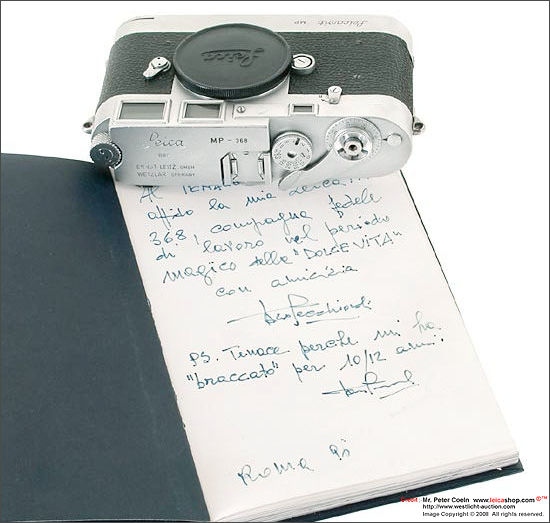 Leicavit MP
Leica
Leica
MP - 368
DBP
ERNST LEITZ GMBH
WETZLAR GERMANY
Al TENACE
affido la mia Leica M
368, compagna fedele
di lavoro nel periodo
magico della "DOLCE VITA"
con amicizia
PS. Tenace perché mi ha
"braccato" per 10/12 anni.
Roma 95
Credit: Mr. Peter Coeln www.leicashop.com ©™
http://www.westlicht-auction.com
Image Copyright © 2008 All rights reserved.